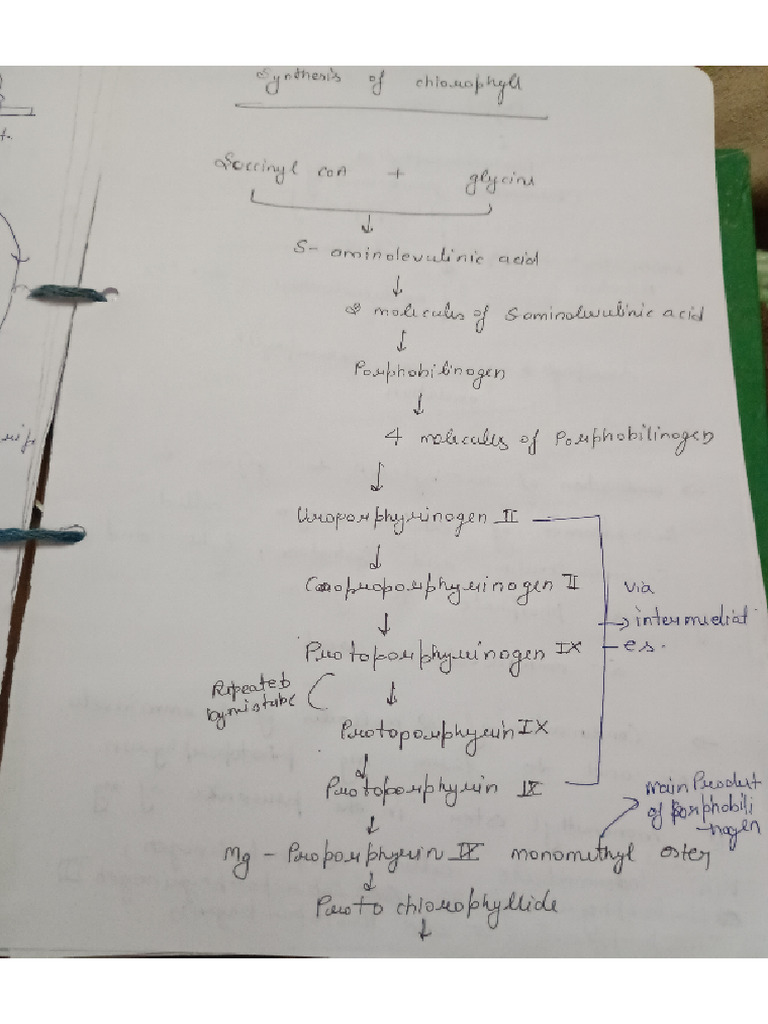 Synthesis of chlorophyll
Soccinyl coA + glycine
S- aminolevulinic acid
molecules of S aminolevulinic acid
Porphobilinogen
4 molecules of Porphobilinogen
Uroporphyrinogen II
Coproporphyrinogen II
via
intermediat
es.
Protoporphyrinogen IX
Repeated
by mistake
Protoporphyrin IX
Protoporphyrin IX
main Product
of porphobili
-nogen
Mg - Proporphyrin IX monomethyl ester
Proto chlorophyllide